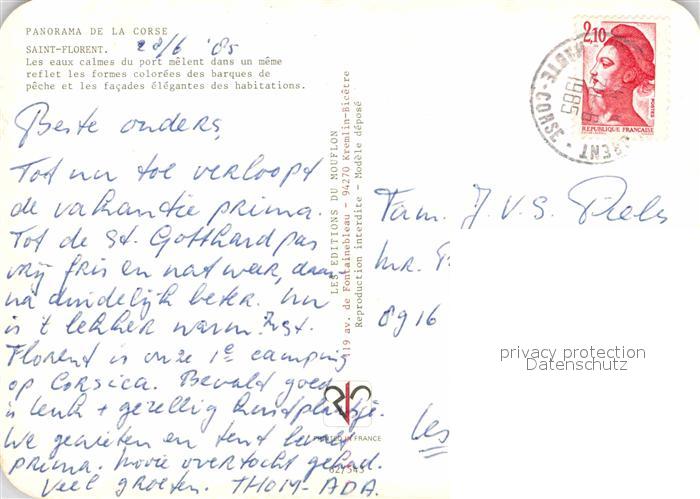 PANORAMA DE LA CORSE
SAINT-FLORENT. 28/6 '85
Les eaux calmes du port mêlent dans un même
reflet les formes colorées des barques de
pêche et les façades élégantes des habitations.
Beste ouders,
Tot nu toe verloopt
de vakantie prima.
Tot de St. Gotthard pas
vrij fris en nat weer, daar-
na duidelijk beter. Nu
is 't lekker warm. St.
Florent is onze 1e camping
op Corsica. Bevalt goed
is leuk + gezellig
We genieten en tent bevalt
prima. Mooie overtocht gehad.
Veel groeten. THOM-ADA.
LES EDITIONS DU MOUFLON
119 av. de Fontainebleau - 94270 Kremlin-Bicêtre
Reproduction interdite - Modèle déposé
PRINTED IN FRANCE
Fam. J. V. S.
Mr.
8916
privacy protection
Datenschutz
2,10
POSTES
REPUBLIQUE FRANÇAISE
HAUTE-CORSE
1985